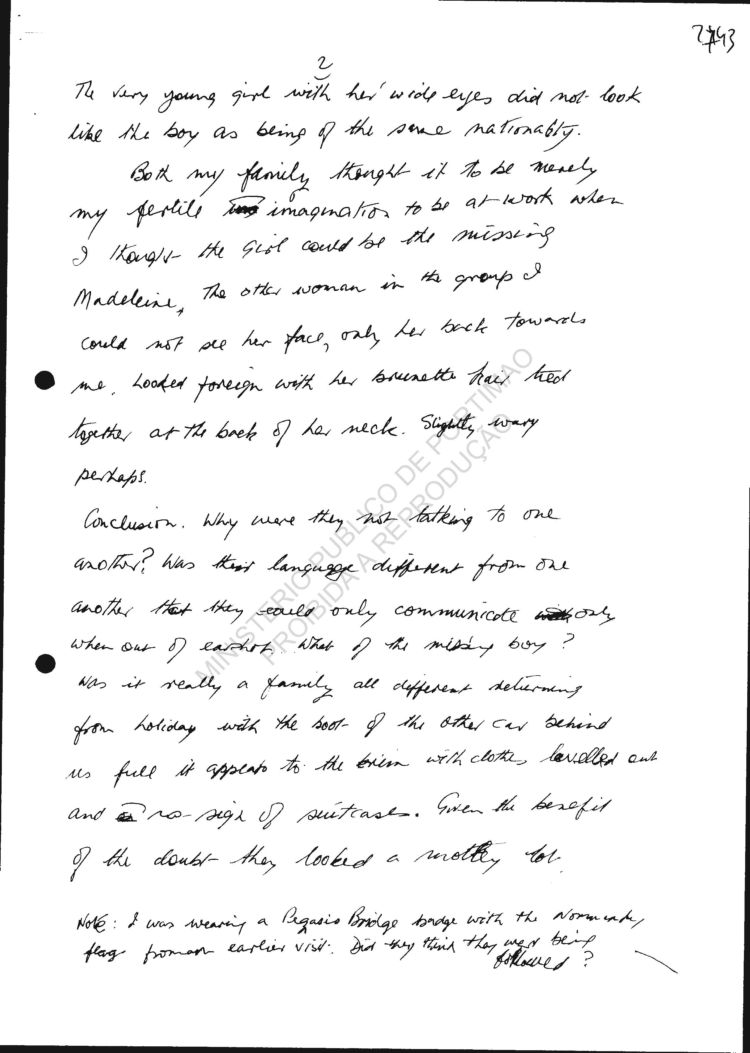 2743
2
The very young girl with her wide eyes did not look
like the boy as being of the same nationality.
Both my family thought it to be merely
my fertile imagination to be at work when
I thought the girl could be the missing
Madeleine, The other woman in the group I
could not see her face, only her back towards
me. Looked foreign with her brunette hair tied
together at the back of her neck. Slightly wavy
perhaps.
Conclusion. Why were they not talking to one
another? Was their language different from one
another that they could only communicate only
when out of earshot. What of the missing boy?
Was it really a family all different returning
from holiday with the boot of the other car behind
us full it appears to the brim with clothes levelled out
and no sign of suitcases. Given the benefit
of the doubt they looked a motley lot.
Note: I was wearing a Pegasus Bridge badge with the Normandy
flag from an earlier visit. Did they think they were being
followed?
MINISTERIO PUBLICO DE PORTIMAO
PROIBIDA A REPRODUÇÃO